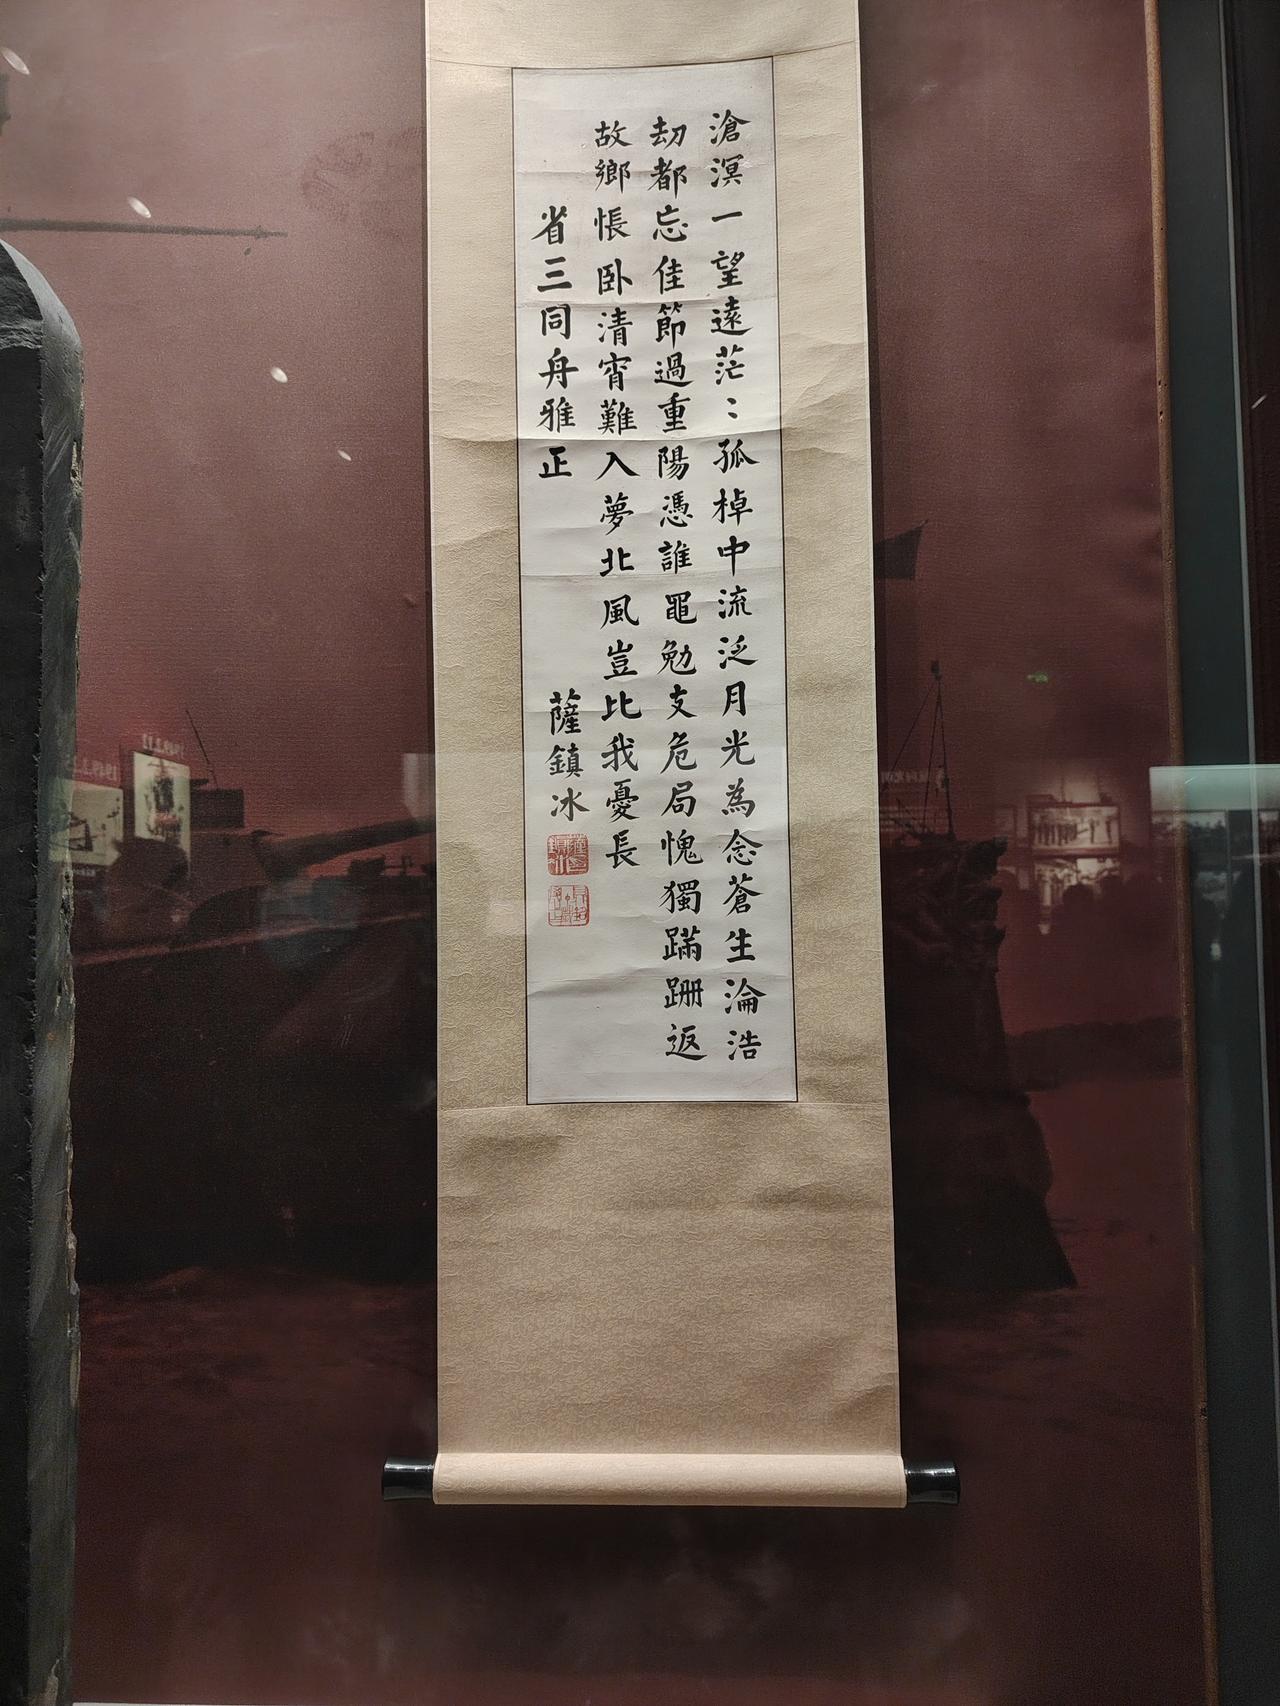 滄溟一望遠茫〻孤棹中流泛月光為念蒼生淪浩
劫都忘佳節過重陽憑誰黽勉支危局愧獨蹣跚返
故鄉悵卧清宵難入夢北風豈比我憂長
省三同舟雅正
薩鎮冰